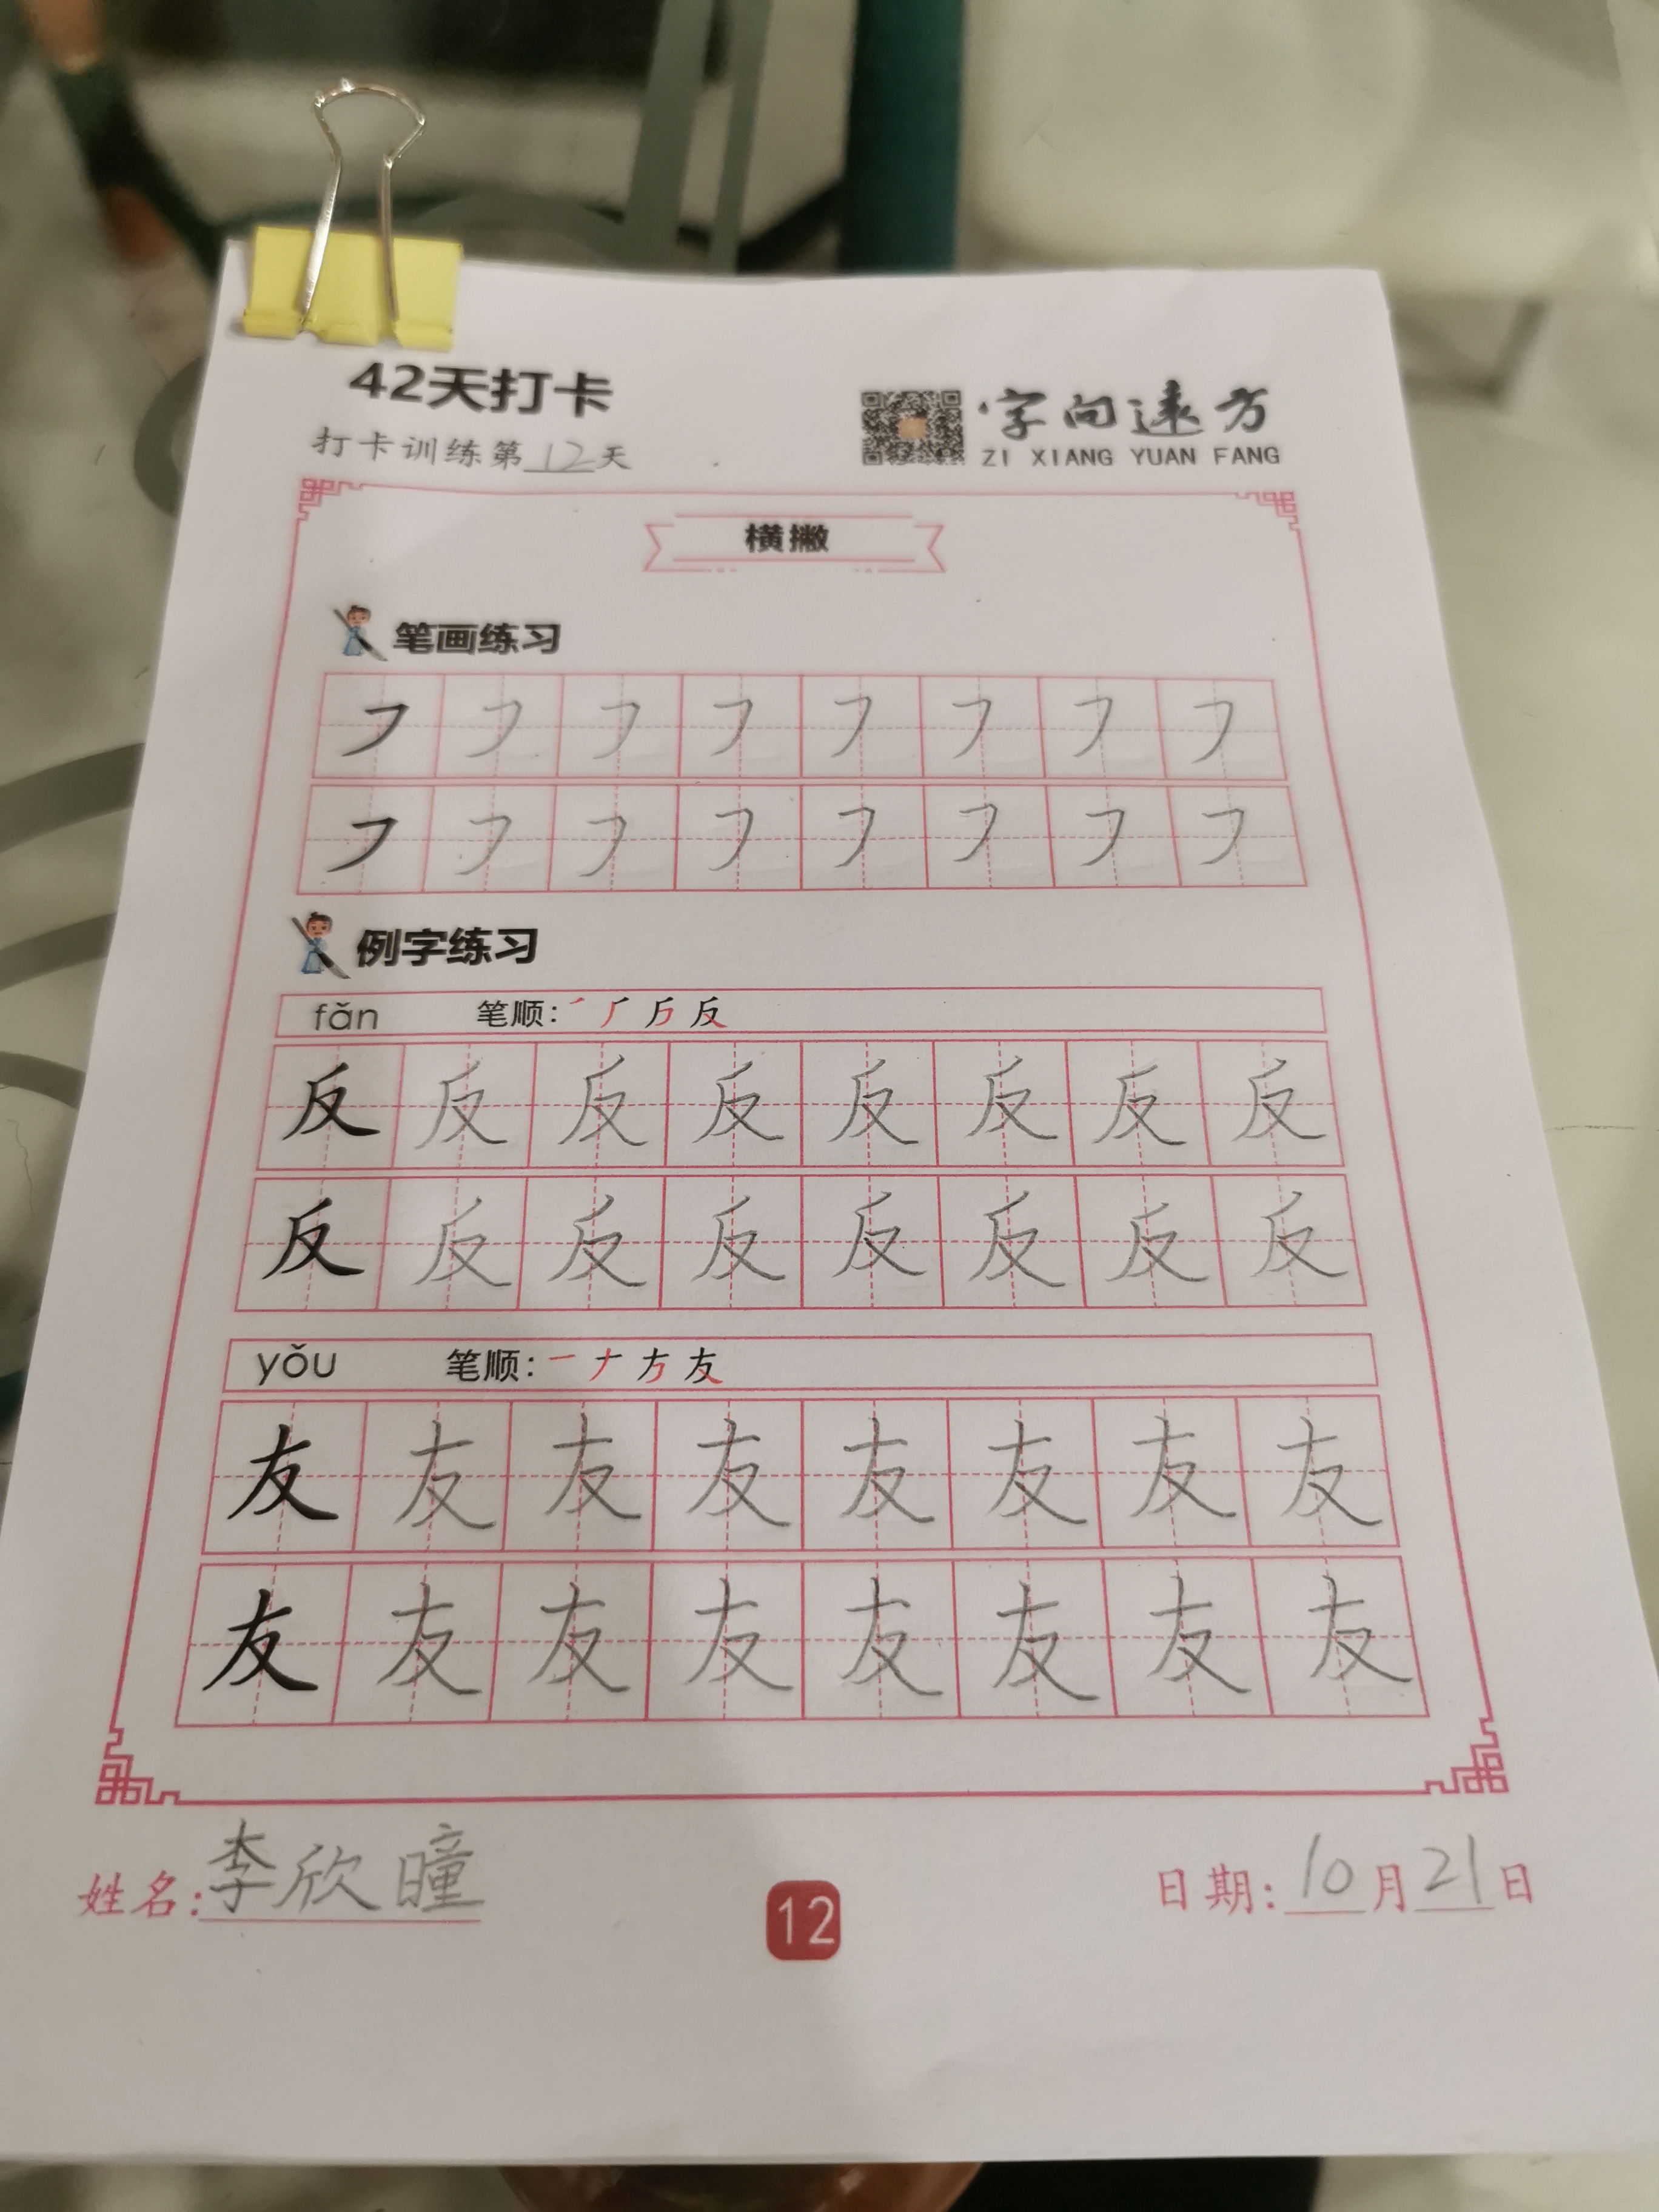 42天打卡
打卡训练第12天
字向远方
ZI XIANG YUAN FANG
横撇
笔画练习
㇇ ㇇ ㇇ ㇇ ㇇ ㇇ ㇇ ㇇
㇇ ㇇ ㇇ ㇇ ㇇ ㇇ ㇇ ㇇
例字练习
fǎn 笔顺: 反
反 反 反 反 反 反 反 反
反 反 反 反 反 反 反 反
yǒu 笔顺: 一 ナ 方 友
友 友 友 友 友 友 友 友
友 友 友 友 友 友 友 友
姓名:李欣曈
12
日期:10月21日